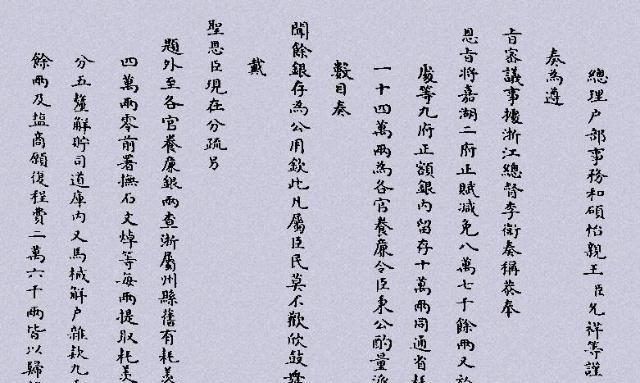 總理户部事務和碩怡親王臣允祥等謹
奏為遵
旨審議事據浙江總督李衛奏稱恭奉
恩旨將嘉湖二府正賦減免八萬七千餘兩又於
處等九府正額銀內留存十萬兩同通省耗
一十四萬兩為各官養廉令臣秉公酌量派
數目奏
聞餘銀存為公用欽此凡屬臣民莫不歡欣鼓舞
戴
聖恩臣現在分疏另
題外至各官養廉銀兩查浙屬州縣舊有耗羡
四萬兩零前署撫石文焯等每兩提取耗羡
分五釐解貯司道庫內又馬械解户雜欵九
餘兩及塩商願復程費二萬六千兩皆以歸